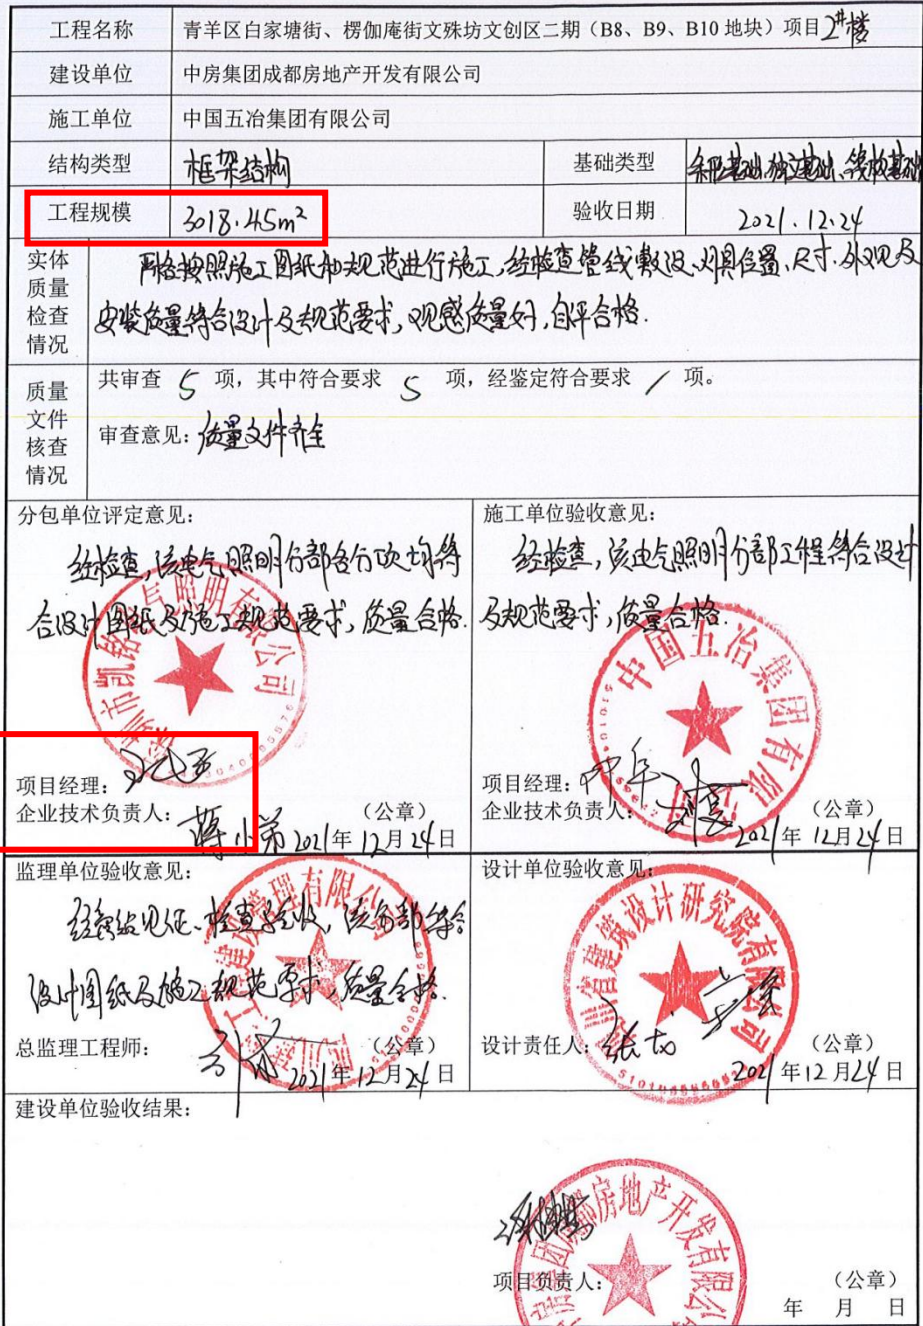 工程名称 青羊区白家塘街、楞伽庵街文殊坊文创区二期（B8、B9、B10 地块）项目2#楼
建设单位 中房集团成都房地产开发有限公司
施工单位 中国五冶集团有限公司
结构类型 框架结构 基础类型 条形基础、独立基础、筏板基础
工程规模 3018.45m² 验收日期 2021.12.24
实体质量检查情况
严格按照施工图纸和规范进行施工,经检查管线敷设、灯具位置、尺寸、外观及
安装质量符合设计及规范要求,观感质量好,自评合格.
质量文件核查情况
共审查 5 项，其中符合要求 5 项，经鉴定符合要求 / 项。
审查意见: 质量文件齐全
分包单位评定意见:
经检查,该电气照明分部各分项均符
合设计图纸及施工规范要求,质量合格.
项目经理:
企业技术负责人: （公章）
2021年12月24日
施工单位验收意见:
经检查,该电气照明分部工程符合设计
及规范要求,质量合格.
中国五冶集团有限公司
项目经理:
企业技术负责人: （公章）
2021年12月24日
监理单位验收意见:
检查验收,该分部符合
设计图纸及施工规范要求,质量合格.
总监理工程师: （公章）
2021年12月24日
设计单位验收意见:
省建筑设计研究院有限公司
设计责任人: （公章）
2021年12月24日
建设单位验收结果:
房地产开发有限公
项目负责人: （公章）
年 月 日